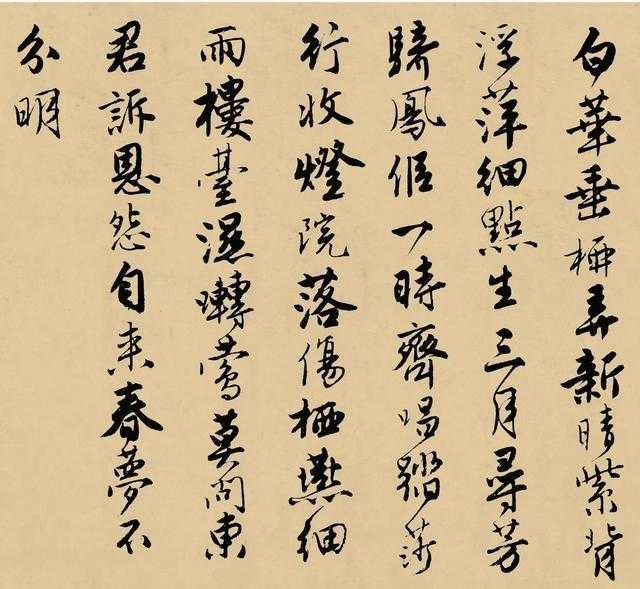 白華垂栖弄新晴紫背
浮萍細點生三月尋芳
騎鳳侶一時齊唱踏莎
行收燈院落傷栖燕細
雨樓臺濕囀鶯莫問東
君訴恩怨自来春夢不
分明